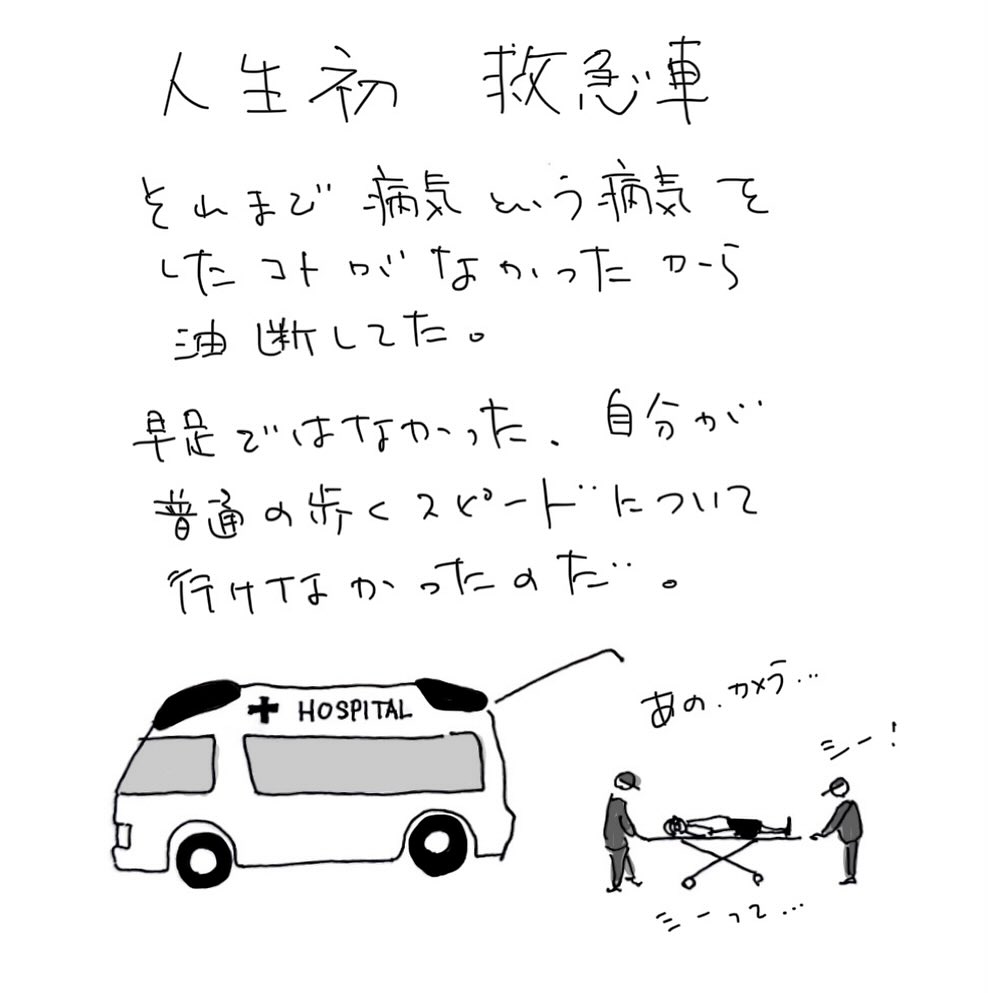 人生初 救急車
それまで病気という病気を
したコトがなかったから
油断してた。
早足ではなかった、自分が
普通の歩くスピードについて
行けてなかったのだ。
HOSPITAL
あの、カメラ…
シー！
シーって…